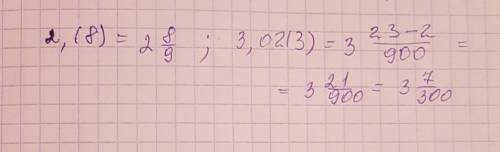 2,(8) = 2 8/9 ; 3,02(3) = 3 23-2/900 =
= 3 21/900 = 3 7/300